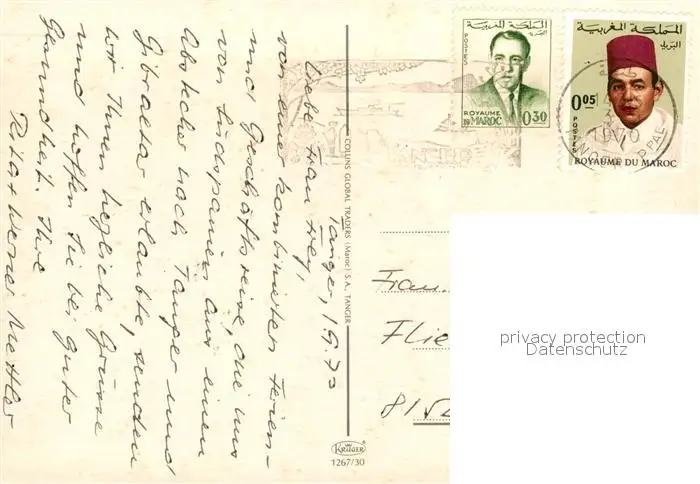 Tanger, 1.9.73
Liebe Frau Frey,
von einer kombinierten Ferien-
und Geschäftsreise, die uns
von Südspanien aus einen
Abstecher nach Tanger und
Gibraltar erlaubte, senden
wir Ihnen herzliche Grüsse
und hoffen Sie bei guter
Gesundheit. Ihre
Rita + Werner Mettler
COLLINS GLOBAL TRADERS (Maroc) S.A., TANGER
KRÜGER
1267/30
المملكة المغربية
البريد
POSTES
ROYAUME
DU MAROC
0.30
المملكة المغربية
البريد
0.05
POSTES
ROYAUME DU MAROC
Frau
Flie
8152
privacy protection
Datenschutz